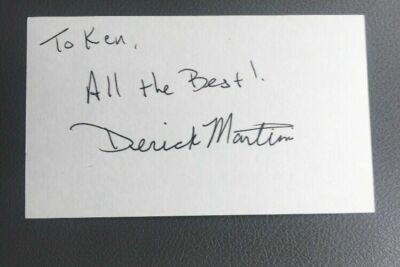 To Ken,
All the Best!
Derick Martini